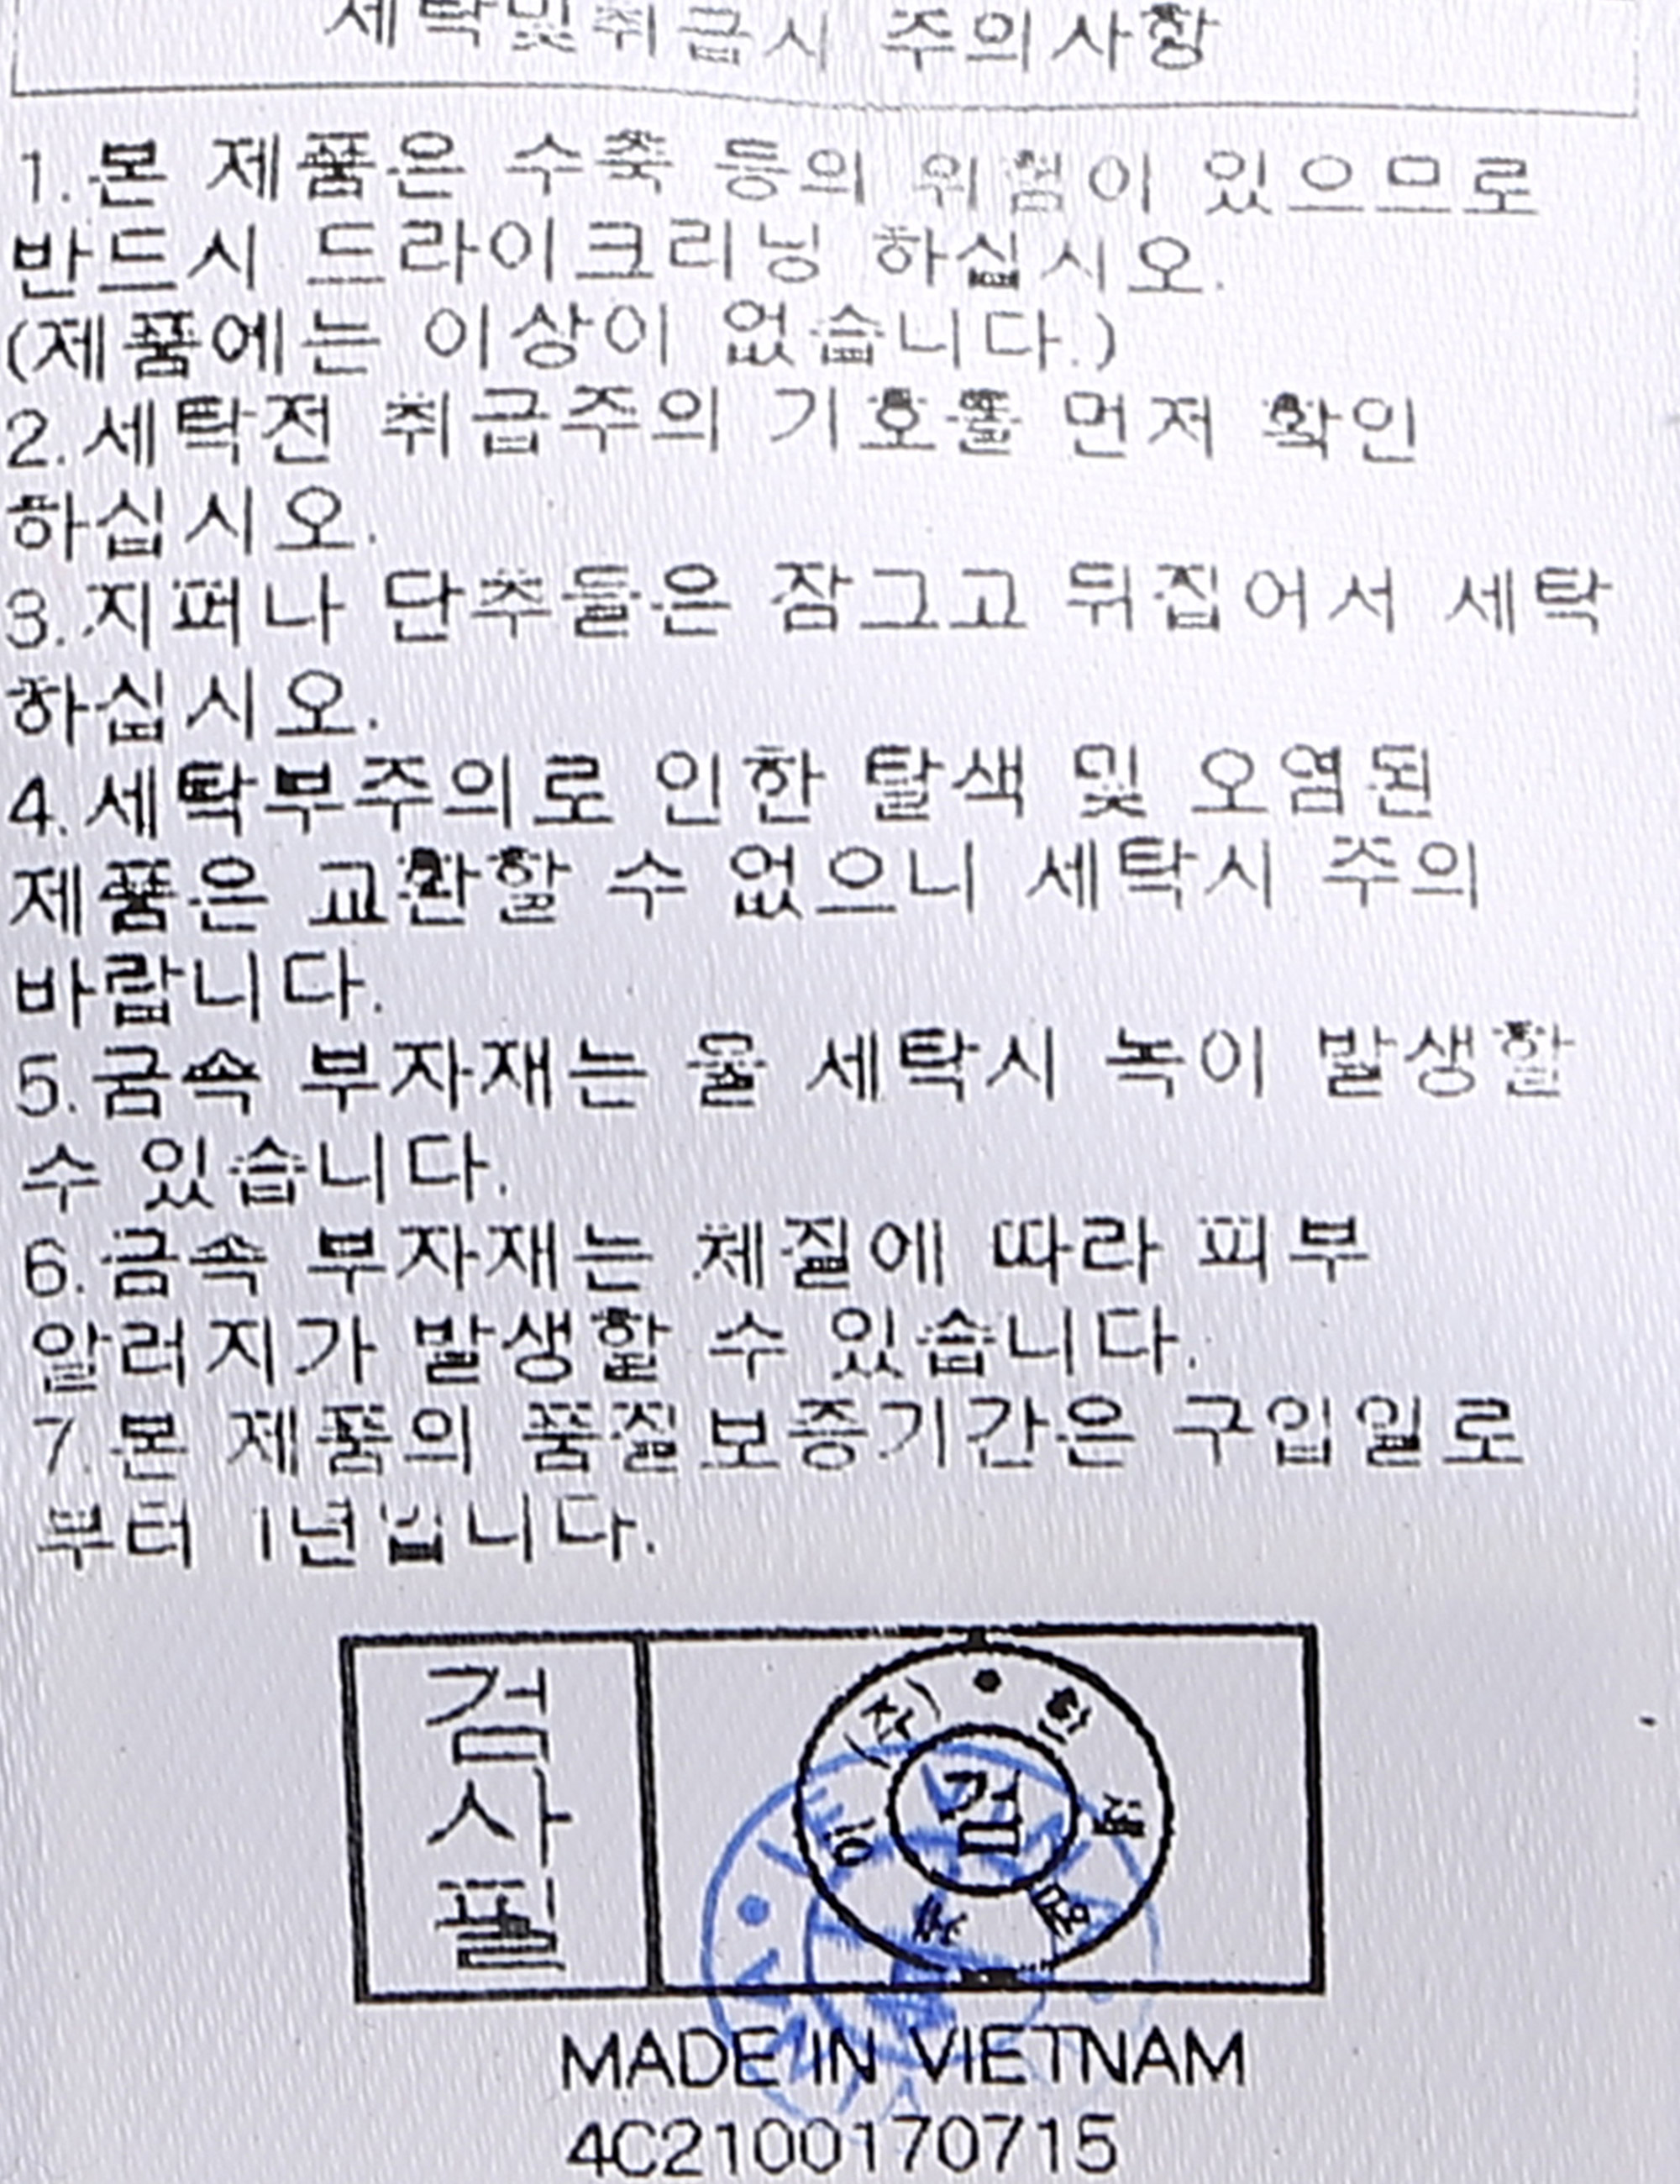 세탁및취급시 주의사항
1.본 제품은 수축 등의 위험이 있으므로
반드시 드라이크리닝 하십시오.
(제품에는 이상이 없습니다.)
2.세탁전 취급주의 기호를 먼저 확인
하십시오.
3.지퍼나 단추들은 잠그고 뒤집어서 세탁
하십시오.
4.세탁부주의로 인한 탈색 및 오염된
제품은 교환할 수 없으니 세탁시 주의
바랍니다.
5.금속 부자재는 물 세탁시 녹이 발생할
수 있습니다.
6.금속 부자재는 체질에 따라 피부
알러지가 발생할 수 있습니다.
7.본 제품의 품질보증기간은 구입일로
부터 1년입니다.
검사필
검
MADE IN VIETNAM
4C2100170715